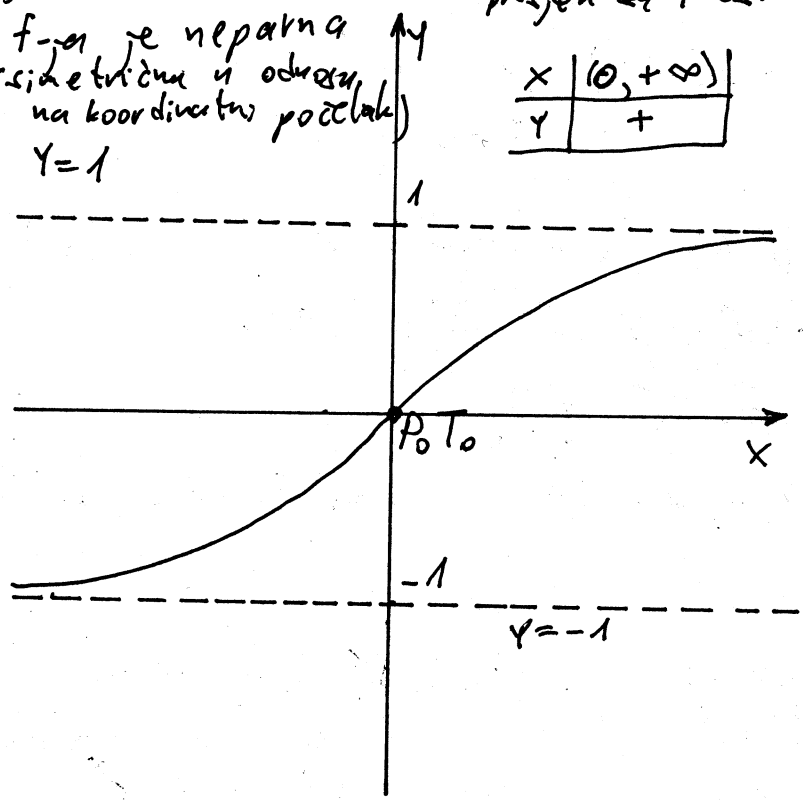 f-ja je neparna
simetrična u odnosu
na koordinatni početak)
Y=1
Y
X (0, +∞)
Y +
1
P₀ T₀
X
-1
Y=-1